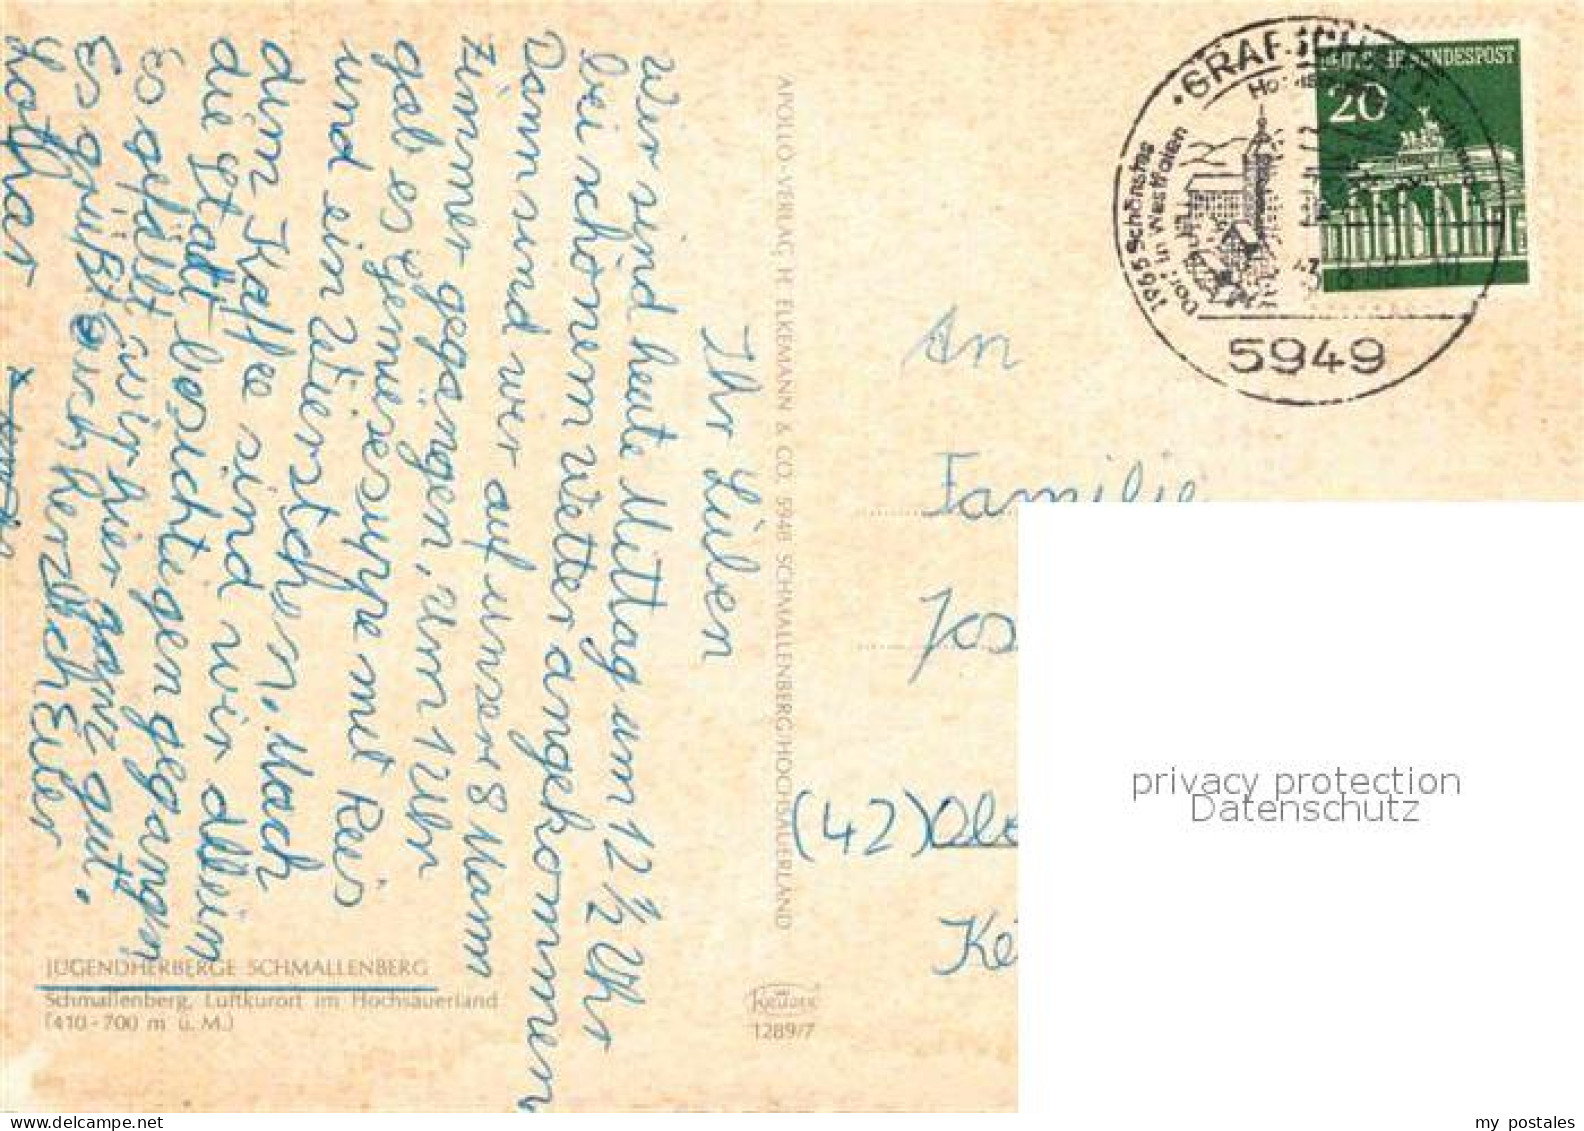 Ihr Lieben
Wir sind heute Mittag um 12 ½ Uhr
bei schönem Wetter angekommen
Dann sind wir auf unser 8 Mann
Zimmer gegangen, Um 1 Uhr
gab es gemüsesuppe mit Reis
und ein Würstchen. Nach
dem Kaffe sind wir allein
die Stadt besichtigen gegangen
Es gefällt mir hier ganz gut.
Es grüßt Euch herzlich Euer
Lothar
JUGENDHERBERGE SCHMALLENBERG
Schmallenberg, Luftkurort im Hochsauerland
(410-700 m ü. M.)
APOLLO-VERLAG, H. ELKEMANN & CO. 5948 SCHMALLENBERG/HOCHSAUERLAND
KRÜGER
1289/7
GRAFSCHAFT
1965 Schönstes
Dorf in Westfalen
5949
DEUTSCHE BUNDESPOST
20
An
Familie
Jos
(42) Obe
Ke
privacy protection
Datenschutz
my postales